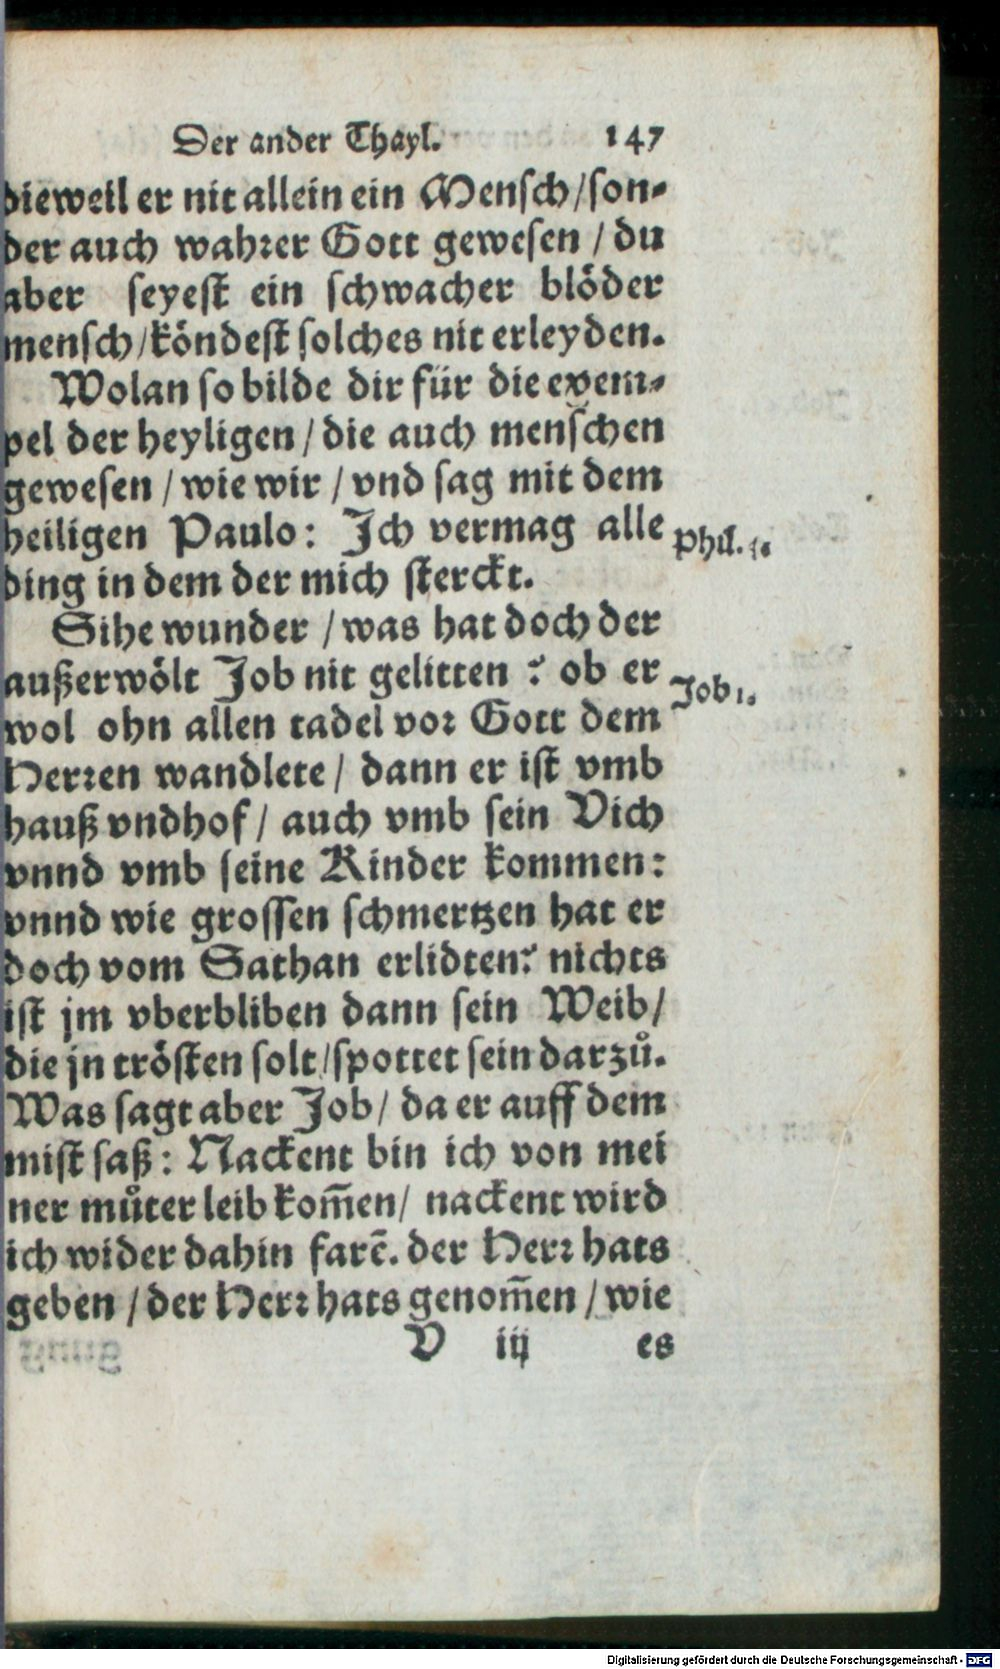 Der ander Thayl. 147
dieweil er nit allein ein Mensch/son-
der auch wahrer Gott gewesen / du
aber seyest ein schwacher blöder
mensch/köndest solches nit erleyden.
Wolan so bilde dir für die exem-
pel der heyligen / die auch menschen
gewesen / wie wir / vnd sag mit dem
heiligen Paulo: Ich vermag alle
Phil. 4.
ding in dem der mich sterckt.
Sihe wunder / was hat doch der
außerwölt Job nit gelitten ? ob er
Job 1.
wol ohn allen tadel vor Gott dem
Herren wandlete / dann er ist vmb
hauß vndhof / auch vmb sein Vich
vnnd vmb seine Kinder kommen:
vnnd wie grossen schmertzen hat er
doch vom Sathan erlidten? nichts
ist jm vberbliben dann sein Weib/
die jn trösten solt/spottet sein darzuͦ.
Was sagt aber Job/ da er auff dem
mist saß: Nackent bin ich von mei
ner muͦter leib kom̃en/ nackent wird
ich wider dahin farẽ. der Herr hats
geben / der Herr hats genom̃en / wie
V iij es
Digitalisierung gefördert durch die Deutsche Forschungsgemeinschaft - DFG